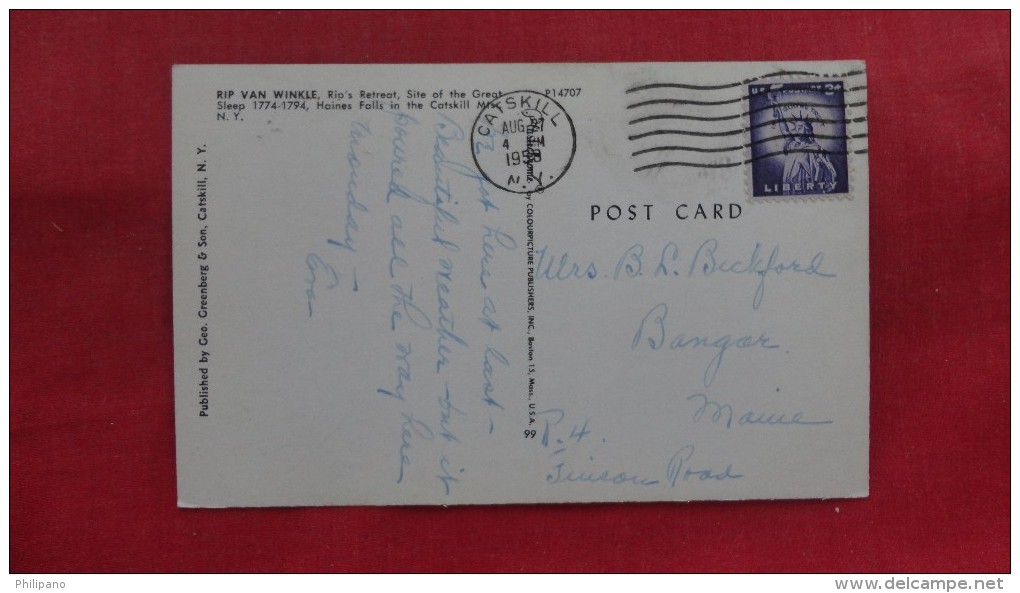 RIP VAN WINKLE, Rip's Retreat, Site of the Great
Sleep 1774-1794, Haines Falls in the Catskill Mts.
N. Y.
P14707
CATSKILL
AUG
4 PM
195
N. Y.
U.S. POSTAGE 3¢
LIBERTY
POST CARD
Published by Geo. Greenberg & Son, Catskill, N. Y.
Plastichrome ® by COLOURPICTURE PUBLISHERS, INC., Boston 15, Mass., U.S.A.
99
got here at last -
Beautiful weather - but it
poured all the way here
Monday -
Eva
Mrs. B. L. Bickford
Bangor
Maine
R. 4.
Road
Philipano
www.delcampe.net